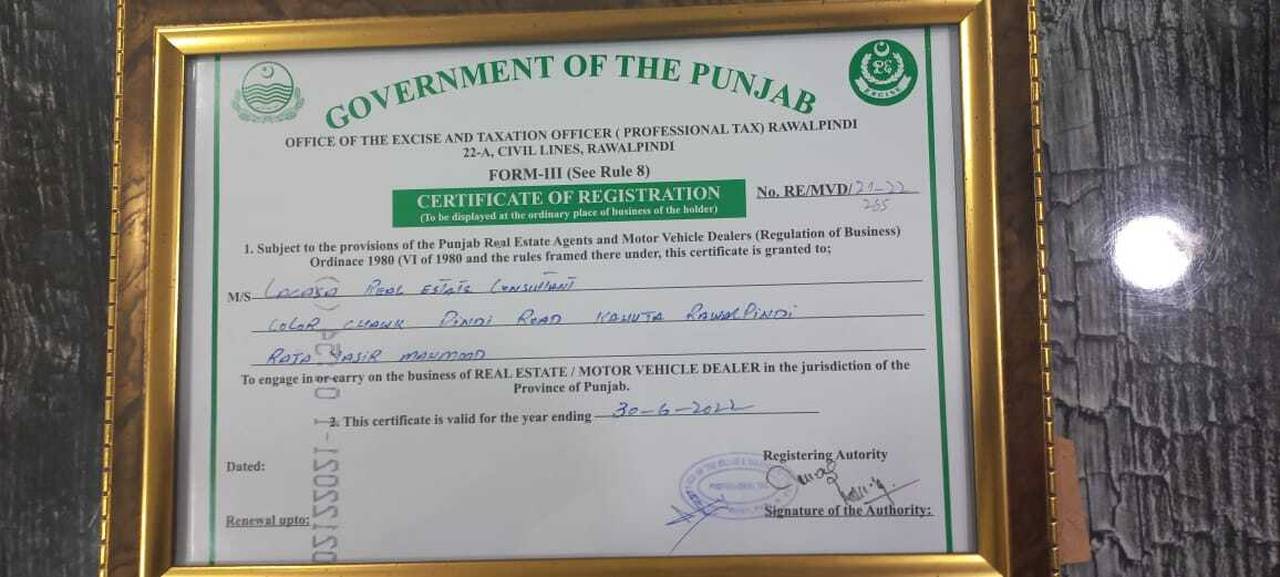 GOVERNMENT OF THE PUNJAB
EXCISE
OFFICE OF THE EXCISE AND TAXATION OFFICER ( PROFESSIONAL TAX) RAWALPINDI
22-A, CIVIL LINES, RAWALPINDI
FORM-III (See Rule 8)
CERTIFICATE OF REGISTRATION
(To be displayed at the ordinary place of business of the holder)
No. RE/MVD/21-22
265
1. Subject to the provisions of the Punjab Real Estate Agents and Motor Vehicle Dealers (Regulation of Business)
Ordinace 1980 (VI of 1980 and the rules framed there under, this certificate is granted to;
M/S LaCasa REAL ESTATE CONSULTANT
COLOR CHAWK PINDI ROAD KAHUTA RAWALPINDI
RAJA YASIR MAHMOOD
To engage in or carry on the business of REAL ESTATE / MOTOR VEHICLE DEALER in the jurisdiction of the
Province of Punjab.
2. This certificate is valid for the year ending 30-6-2022
Dated:
Registering Autority
Renewal upto:
Signature of the Authority: